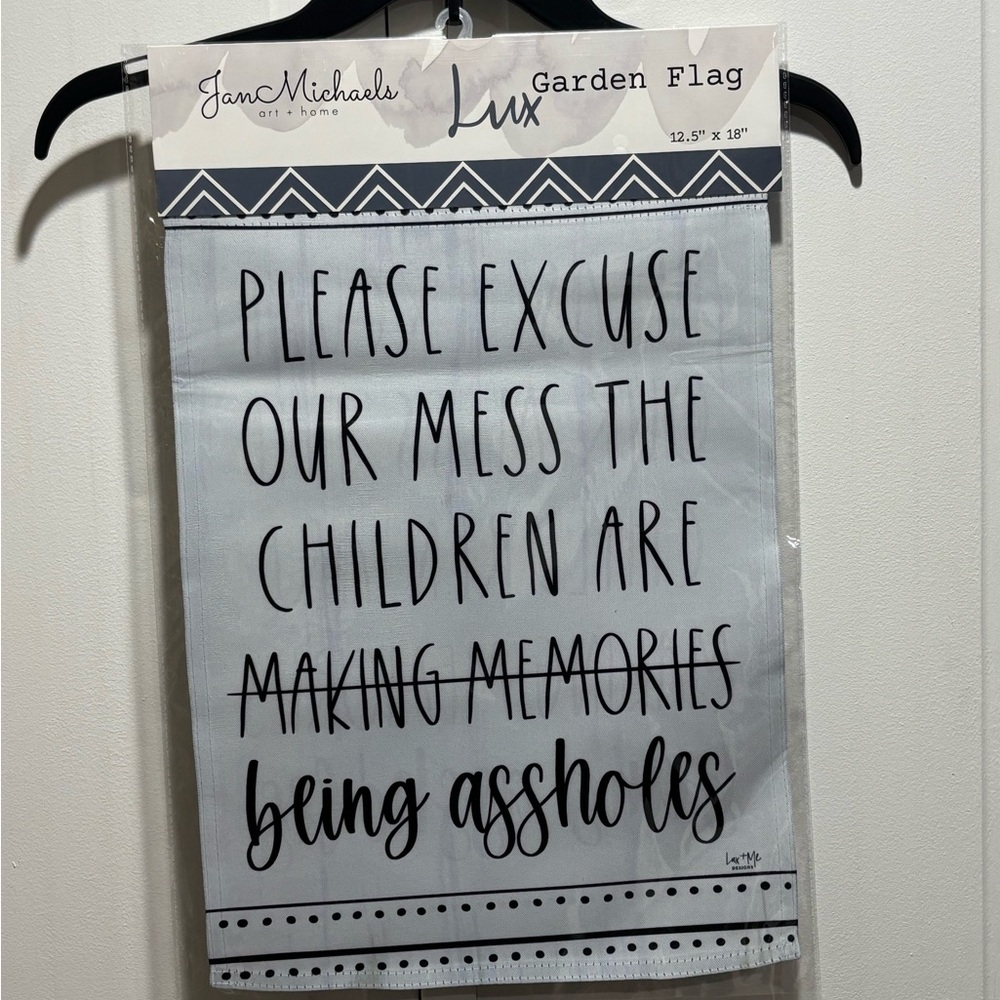 JanMichaels
art + home
Lux
Garden Flag
12.5" x 18"
PLEASE EXCUSE
OUR MESS THE
CHILDREN ARE
MAKING MEMORIES
being assholes
Lux + Me
DESIGNS